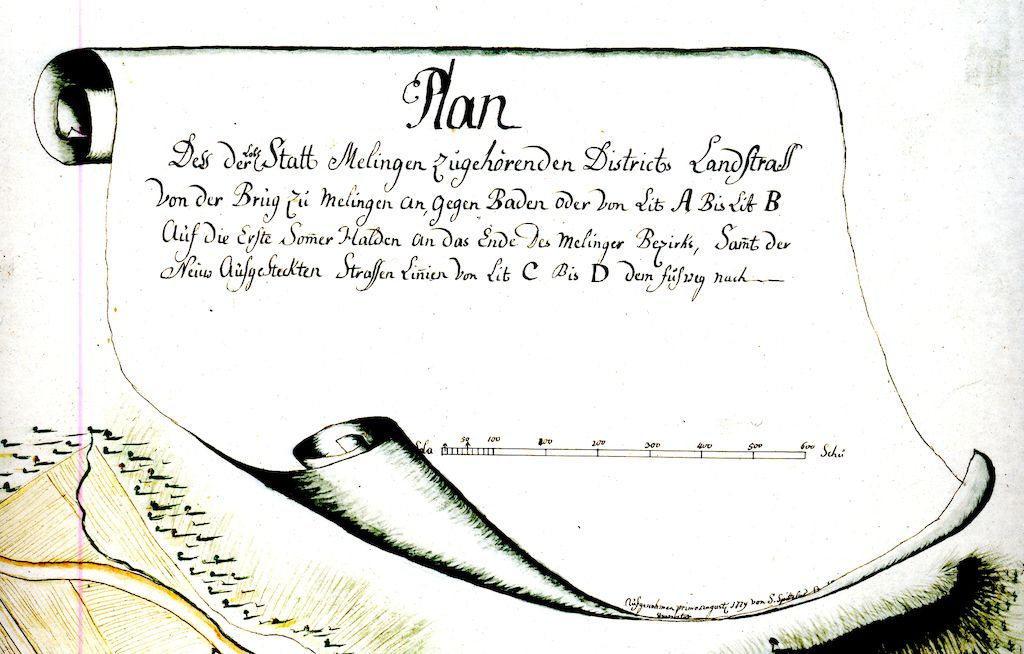 Plan
Dess der Lobl Statt Melingen zugehörenden Districts Landstrass
Von der Brüg zu Melingen an, gegen Baden oder von Lit A Bis Lit B
Auf die Erste Som̄er Halden an das Ende des Melinger Bezirks, Sam̄t der
Neüw Aufgesteckten Strassen Linien von Lit C Bis D dem fusweg nach
50 100 200 200 300 400 500 600 Schü
Aufgenohmen primo augusti 1779 von S.